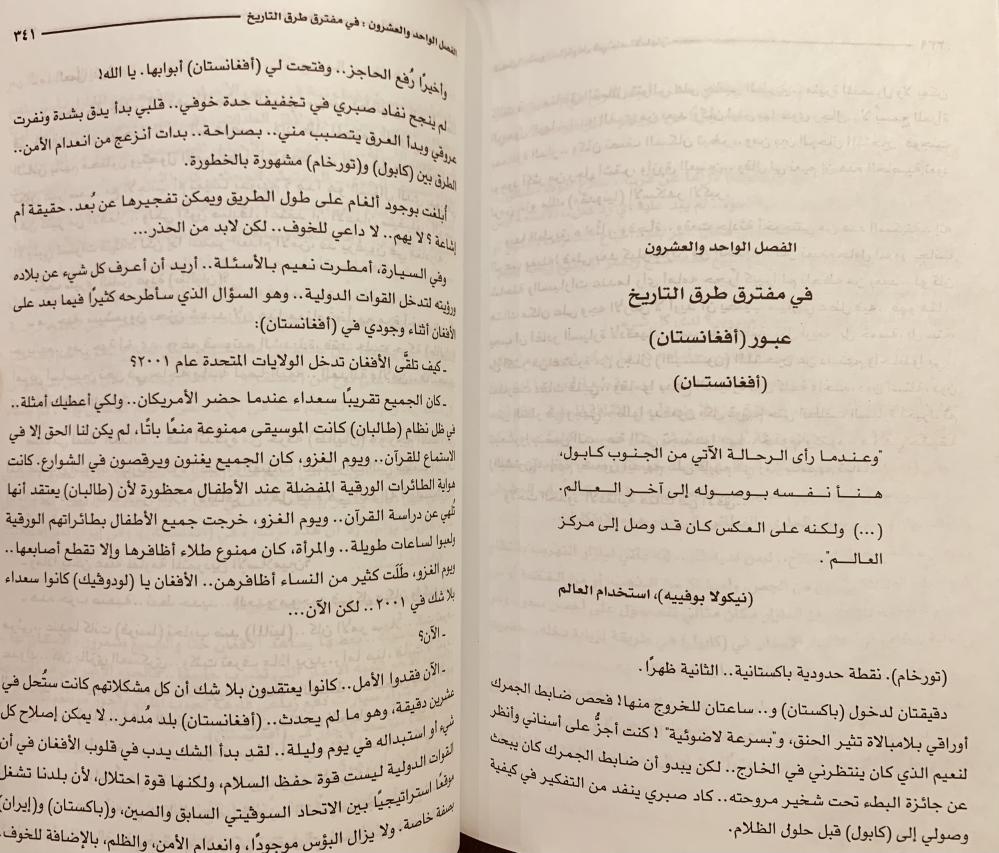 الفصل الواحد والعشرون
في مفترق طرق التاريخ
عبور (أفغانستان)
(أفغانستان)
"وعندما رأى الرحالة الآتي من الجنوب كابول،
هنأ نفسه بوصوله إلى آخر العالم.
(...) ولكنه على العكس كان قد وصل إلى مركز
العالم".
(نيكولا بوفييه)، استخدام العالم
(تورخام). نقطة حدودية باكستانية.. الثانية ظهرًا.
دقيقتان لدخول (باكستان) و.. ساعتان للخروج منها! فحص ضابط الجمرك
أوراقي بلامبالاة تثير الحنق، و"بسرعة لاضوئية" ! كنت أجزُّ على أسناني وأنظر
لنعيم الذي كان ينتظرني في الخارج.. لكن يبدو أن ضابط الجمرك كان يبحث
عن جائزة البطء تحت شخير مروحته.. كاد صبري ينفد من التفكير في كيفية
وصولي إلى (كابول) قبل حلول الظلام.
الفصل الواحد والعشرون : في مفترق طرق التاريخ ٣٤١
وأخيرًا رُفع الحاجز.. وفتحت لي (أفغانستان) أبوابها. يا الله!
لم ينجح نفاد صبري في تخفيف حدة خوفي.. قلبي بدأ يدق بشدة ونفرت
عروقي وبدأ العرق يتصبب مني.. بصراحة.. بدأت أنزعج من انعدام الأمن..
الطرق بين (كابول) و(تورخام) مشهورة بالخطورة.
أُبلغت بوجود ألغام على طول الطريق ويمكن تفجيرها عن بُعد. حقيقة أم
إشاعة ؟ لا يهم.. لا داعي للخوف.. لكن لابد من الحذر...
وفي السيارة، أمطرت نعيم بالأسئلة.. أريد أن أعرف كل شيء عن بلاده
ورؤيته لتدخل القوات الدولية.. وهو السؤال الذي سأطرحه كثيرًا فيما بعد على
الأفغان أثناء وجودي في (أفغانستان):
ـ كيف تلقَّى الأفغان تدخل الولايات المتحدة عام ٢٠٠١؟
ـ كان الجميع تقريبًا سعداء عندما حضر الأمريكان.. ولكي أعطيك أمثلة..
في ظل نظام (طالبان) كانت الموسيقى ممنوعة منعًا باتًا، لم يكن لنا الحق إلا في
الاستماع للقرآن.. ويوم الغزو، كان الجميع يغنون ويرقصون في الشوارع. كانت
هواية الطائرات الورقية المفضلة عند الأطفال محظورة لأن (طالبان) يعتقد أنها
تُلهي عن دراسة القرآن.. ويوم الغزو، خرجت جميع الأطفال بطائراتهم الورقية
ولعبوا لساعات طويلة.. والمرأة، كان ممنوع طلاء أظافرها وإلا تقطع أصابعها..
ويوم الغزو، طَلَت كثير من النساء أظافرهن.. الأفغان يا (لودوڤيك) كانوا سعداء
بلا شك في ٢٠٠١.. لكن الآن...
ـ الآن؟
ـ الآن فقدوا الأمل.. كانوا يعتقدون بلا شك أن كل مشكلاتهم كانت ستُحل في
عشرين دقيقة، وهو ما لم يحدث.. (أفغانستان) بلد مُدمر.. لا يمكن إصلاح كل
شيء أو استبداله في يوم وليلة.. لقد بدأ الشك يدب في قلوب الأفغان في أن
القوات الدولية ليست قوة حفظ السلام، ولكنها قوة احتلال، لأن بلدنا تشغل
موقعًا استراتيجيًا بين الاتحاد السوڤيتي السابق والصين، و(باكستان) و(إيران)
بصفة خاصة. ولا يزال البؤس موجودًا، وانعدام الأمن، والظلم، بالإضافة للخوف.